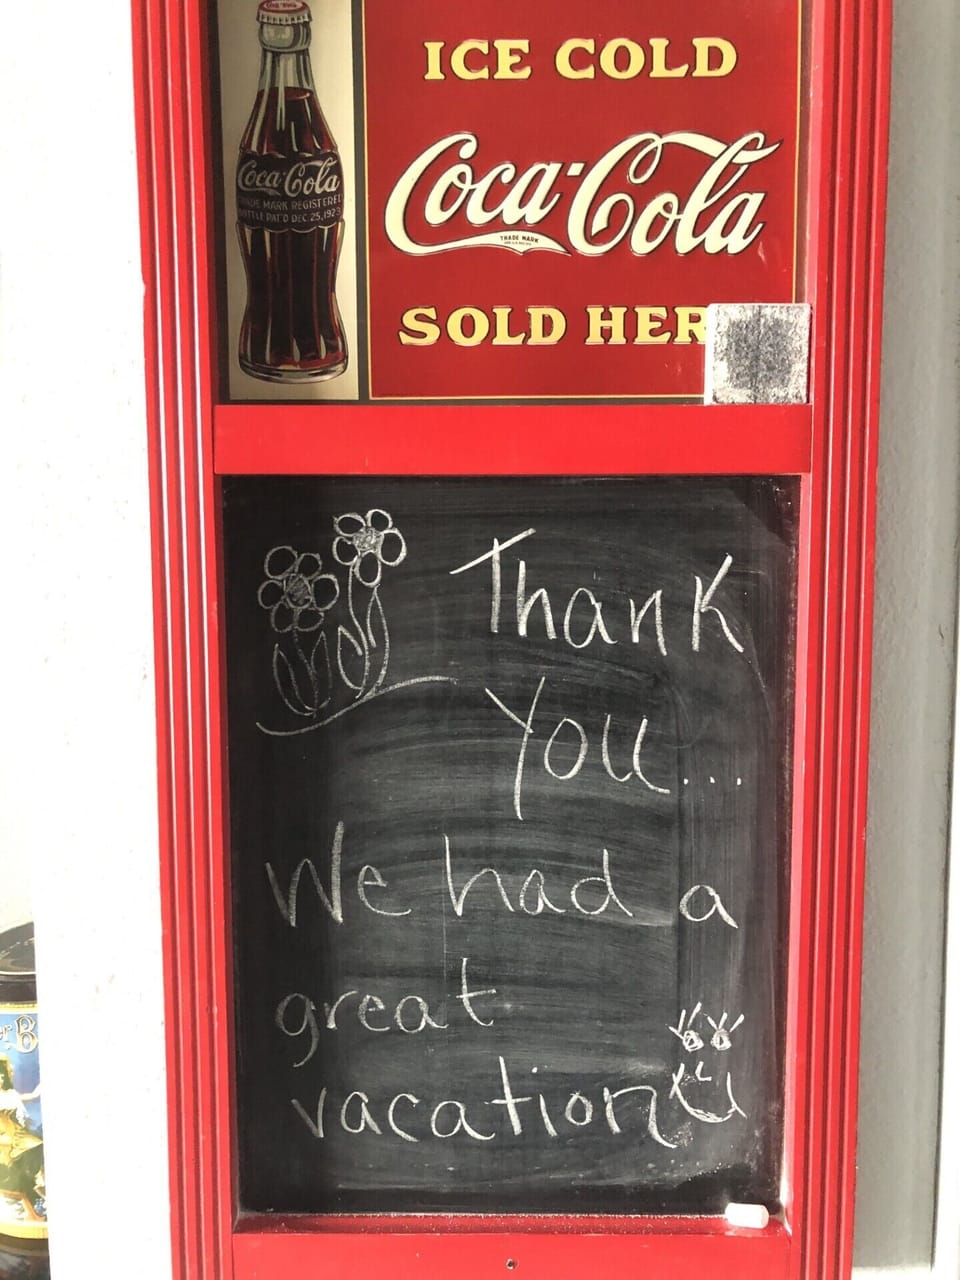 ICE COLD
Coca-Cola
TRADE MARK
SOLD HER
Coca-Cola
TRADE MARK REGISTERED
BOTTLE PAT'D DEC. 25, 1923
Thank
You...
We had a
great
vacation